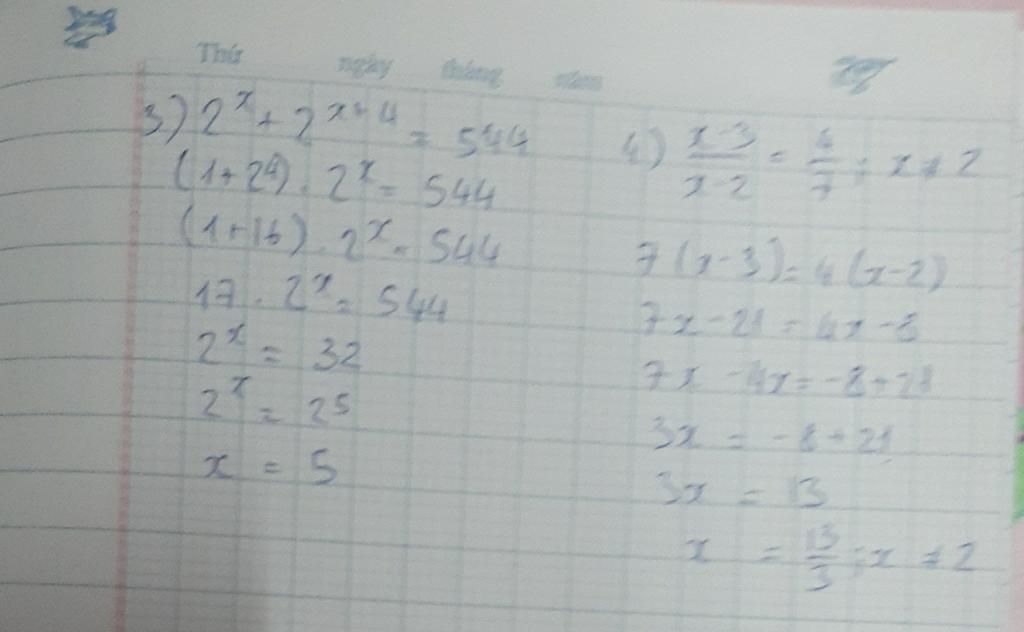 Thứ ngày tháng năm
3) 2^x + 2^{x+4} = 544
(1+2^4) . 2^x = 544
(1+16) . 2^x = 544
17 . 2^x = 544
2^x = 32
2^x = 2^5
x = 5
4) \frac{x-3}{x-2} = \frac{4}{7} ; x ≠ 2
7(x-3) = 4(x-2)
7x - 21 = 4x - 8
7x - 4x = -8 + 21
3x = -8 + 21
3x = 13
x = \frac{13}{3} ; x ≠ 2